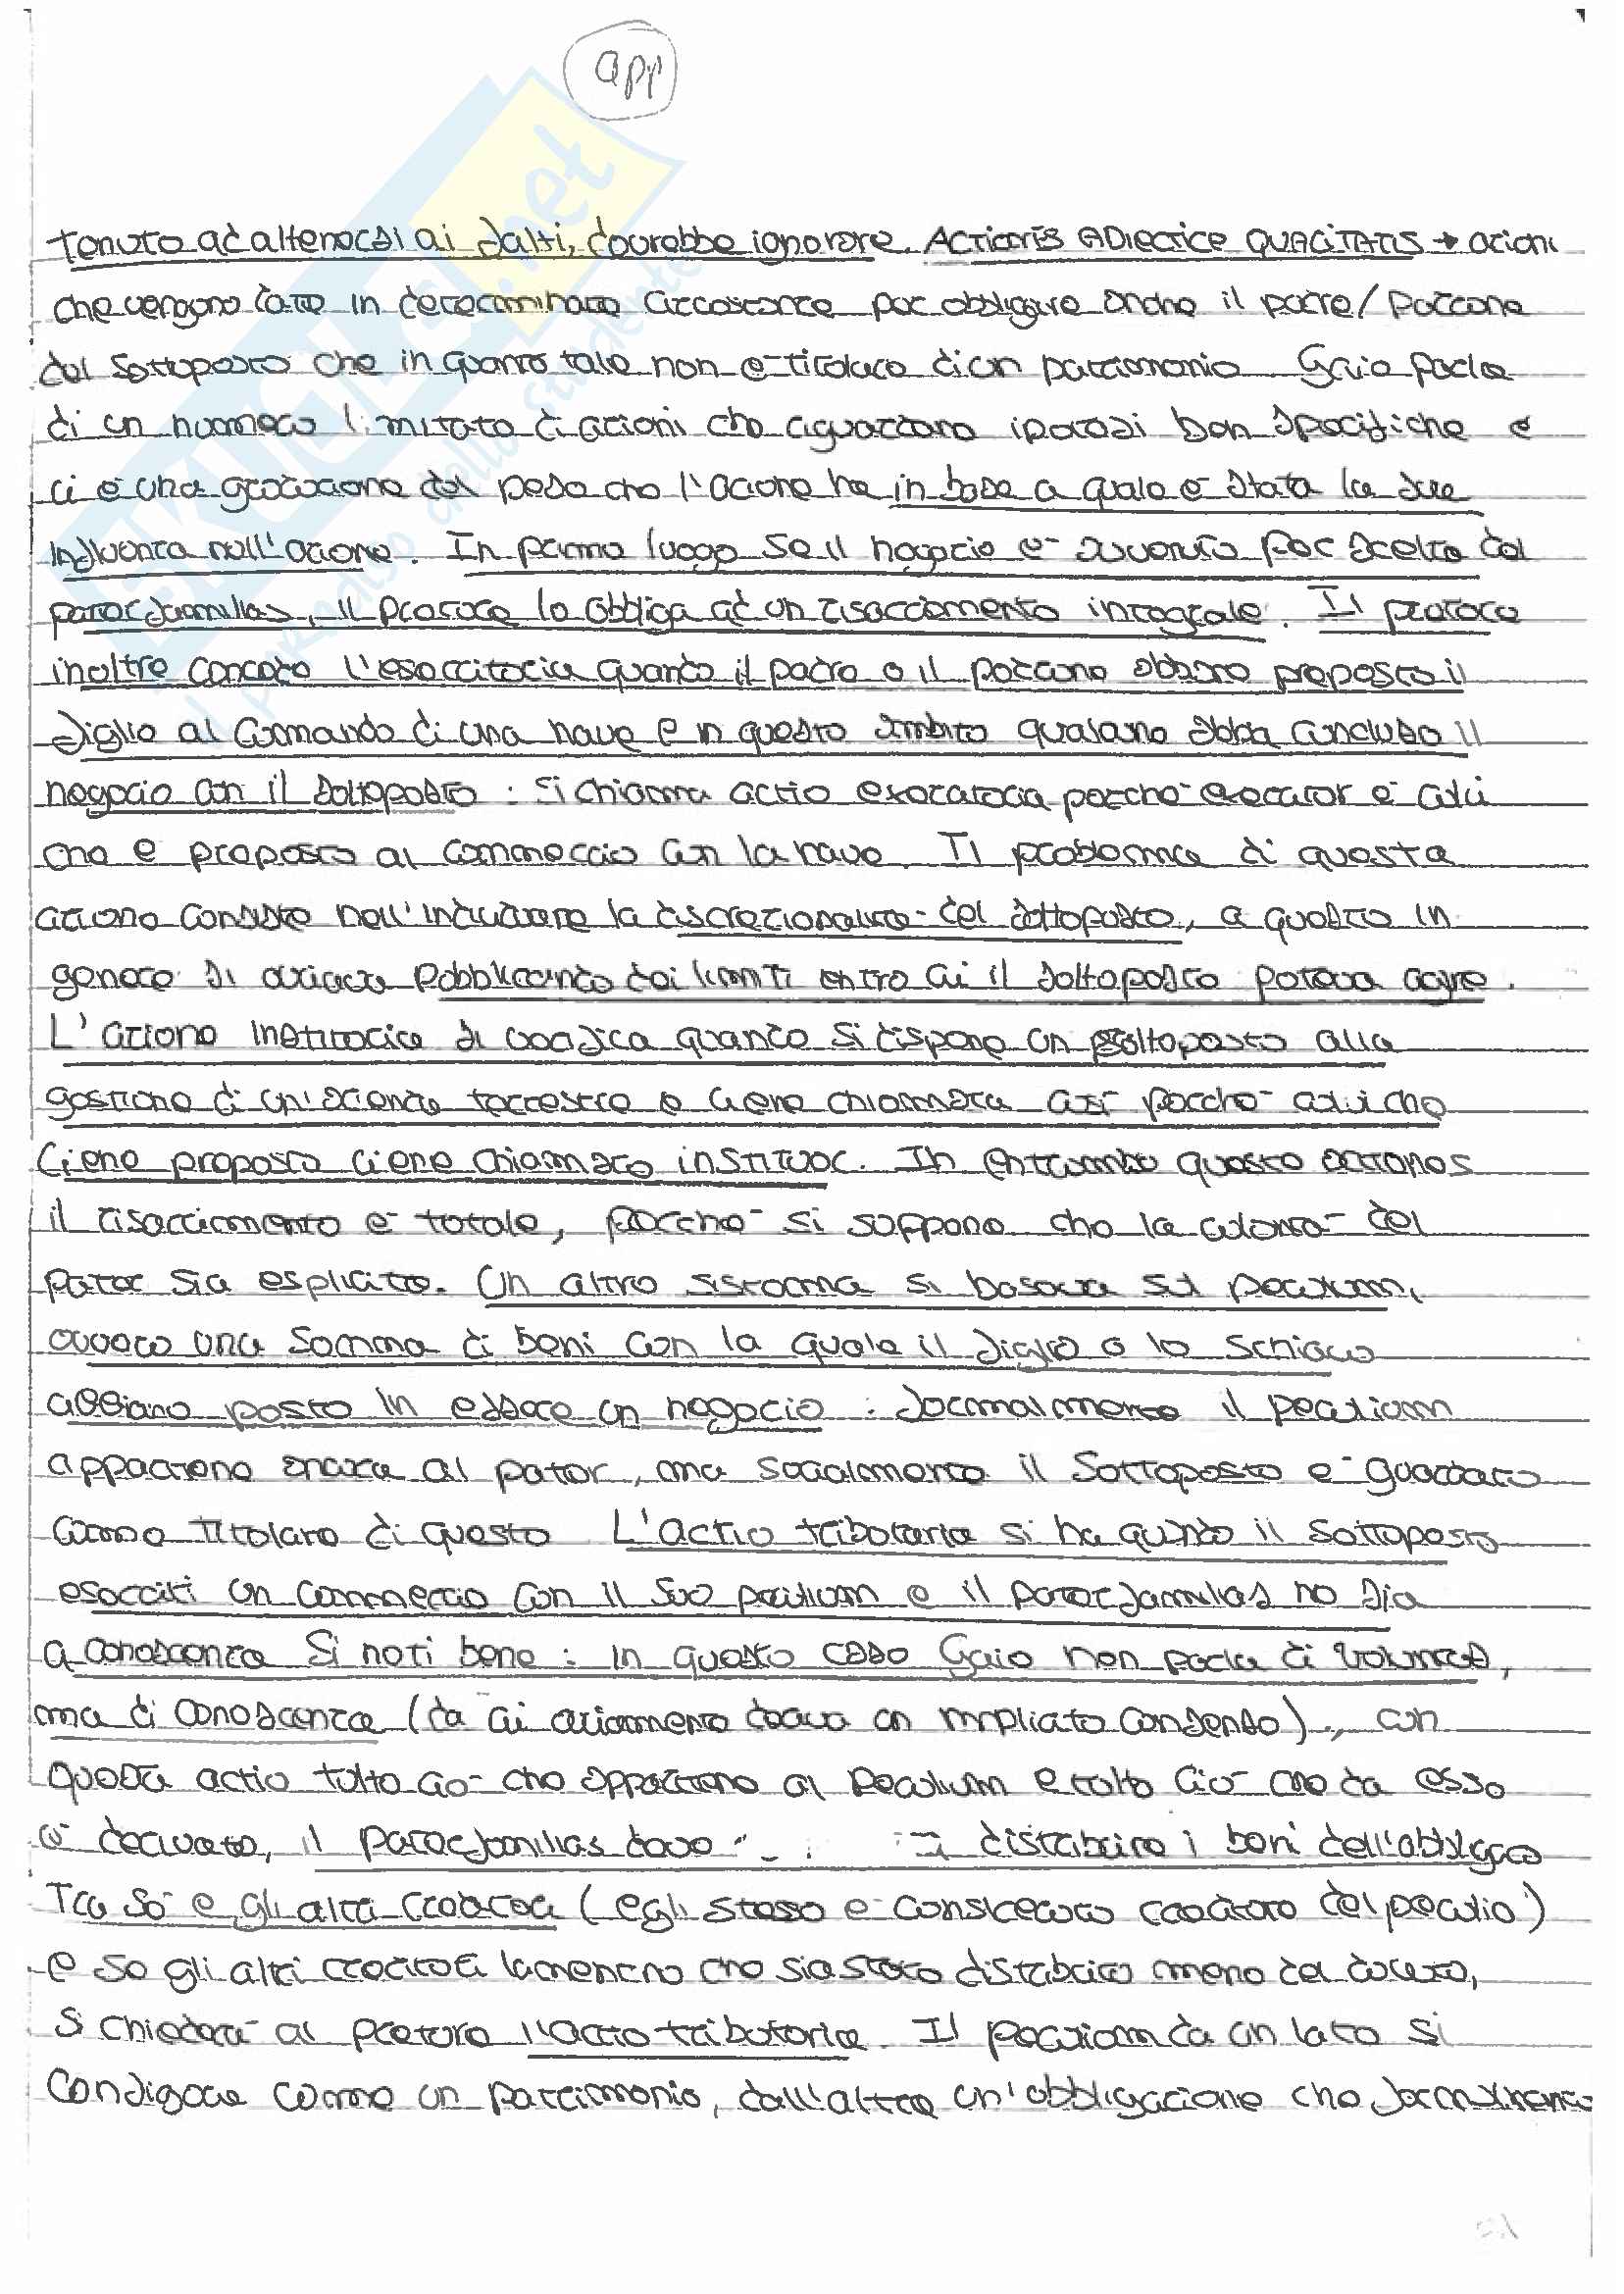 app
tenuto ad attenersi ai fatti, dovrebbe ignorare. ACTIONIS ADIECTICE QUALITATIS → azioni
che vengono date in determinate circostanze per obbligare anche il padre/padrone
del sottoposto che in quanto tale non è titolare di un patrimonio Gaio parla
di un numero limitato di azioni che riguardano ipotesi ben specifiche e
ci è una gradazione del peso che l'azione ha in base a quale è stata la sua
influenza nell'azione. In primo luogo se il negozio è avvenuto per scelta del
paterfamilias, il pretore lo obbliga ad un risarcimento integrale. Il pretore
inoltre concede l'esercitoria quando il padre o il padrone abbiano preposto il
figlio al comando di una nave e in questo ambito qualcuno abbia concluso il
negozio con il sottoposto: si chiama actio exercitoria perché exercitor è colui
che è preposto al commercio con la nave. Il problema di questa
azione consiste nell'individuare la discrezionalità del sottoposto, a questo in
genere si ovviava pubblicando dei limiti entro cui il sottoposto poteva agire.
L'azione institoria si verifica quando si dispone un sottoposto alla
gestione di un'azienda terrestre e viene chiamata così perché colui che
viene preposto viene chiamato institor. In entrambe queste actiones
il risarcimento è totale, perché si suppone che la volontà del
pater sia esplicita. Un altro sistema si basava sul peculium,
ovvero una somma di beni con la quale il figlio o lo schiavo
abbiano posto in essere un negozio: formalmente il peculium
appartiene ancora al pater, ma socialmente il sottoposto è guardato
come titolare di questo L'actio tributoria si ha quando il sottoposto
eserciti un commercio con il suo peculium e il paterfamilias ne sia
a conoscenza Si noti bene: in questo caso Gaio non parla di voluntas,
ma di conoscenza (da cui ovviamente deriva un implicito consenso), con
questa actio tutto ciò che appartiene al peculium e tutto ciò che da esso
è derivato, il paterfamilias deve distribuire i beni dell'obbligato
tra sé e gli altri creditori (egli stesso è considerato creditore del peculio)
e se gli altri creditori lamentano che sia stato distribuito meno del dovuto,
si chiederà al pretore l'actio tributoria. Il peculium da un lato si
configura come un patrimonio, dall'altra un'obbligazione che formalmente